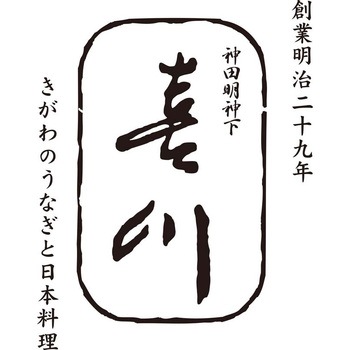 創業明治二十九年
神田明神下
喜川
きがわのうなぎと日本料理